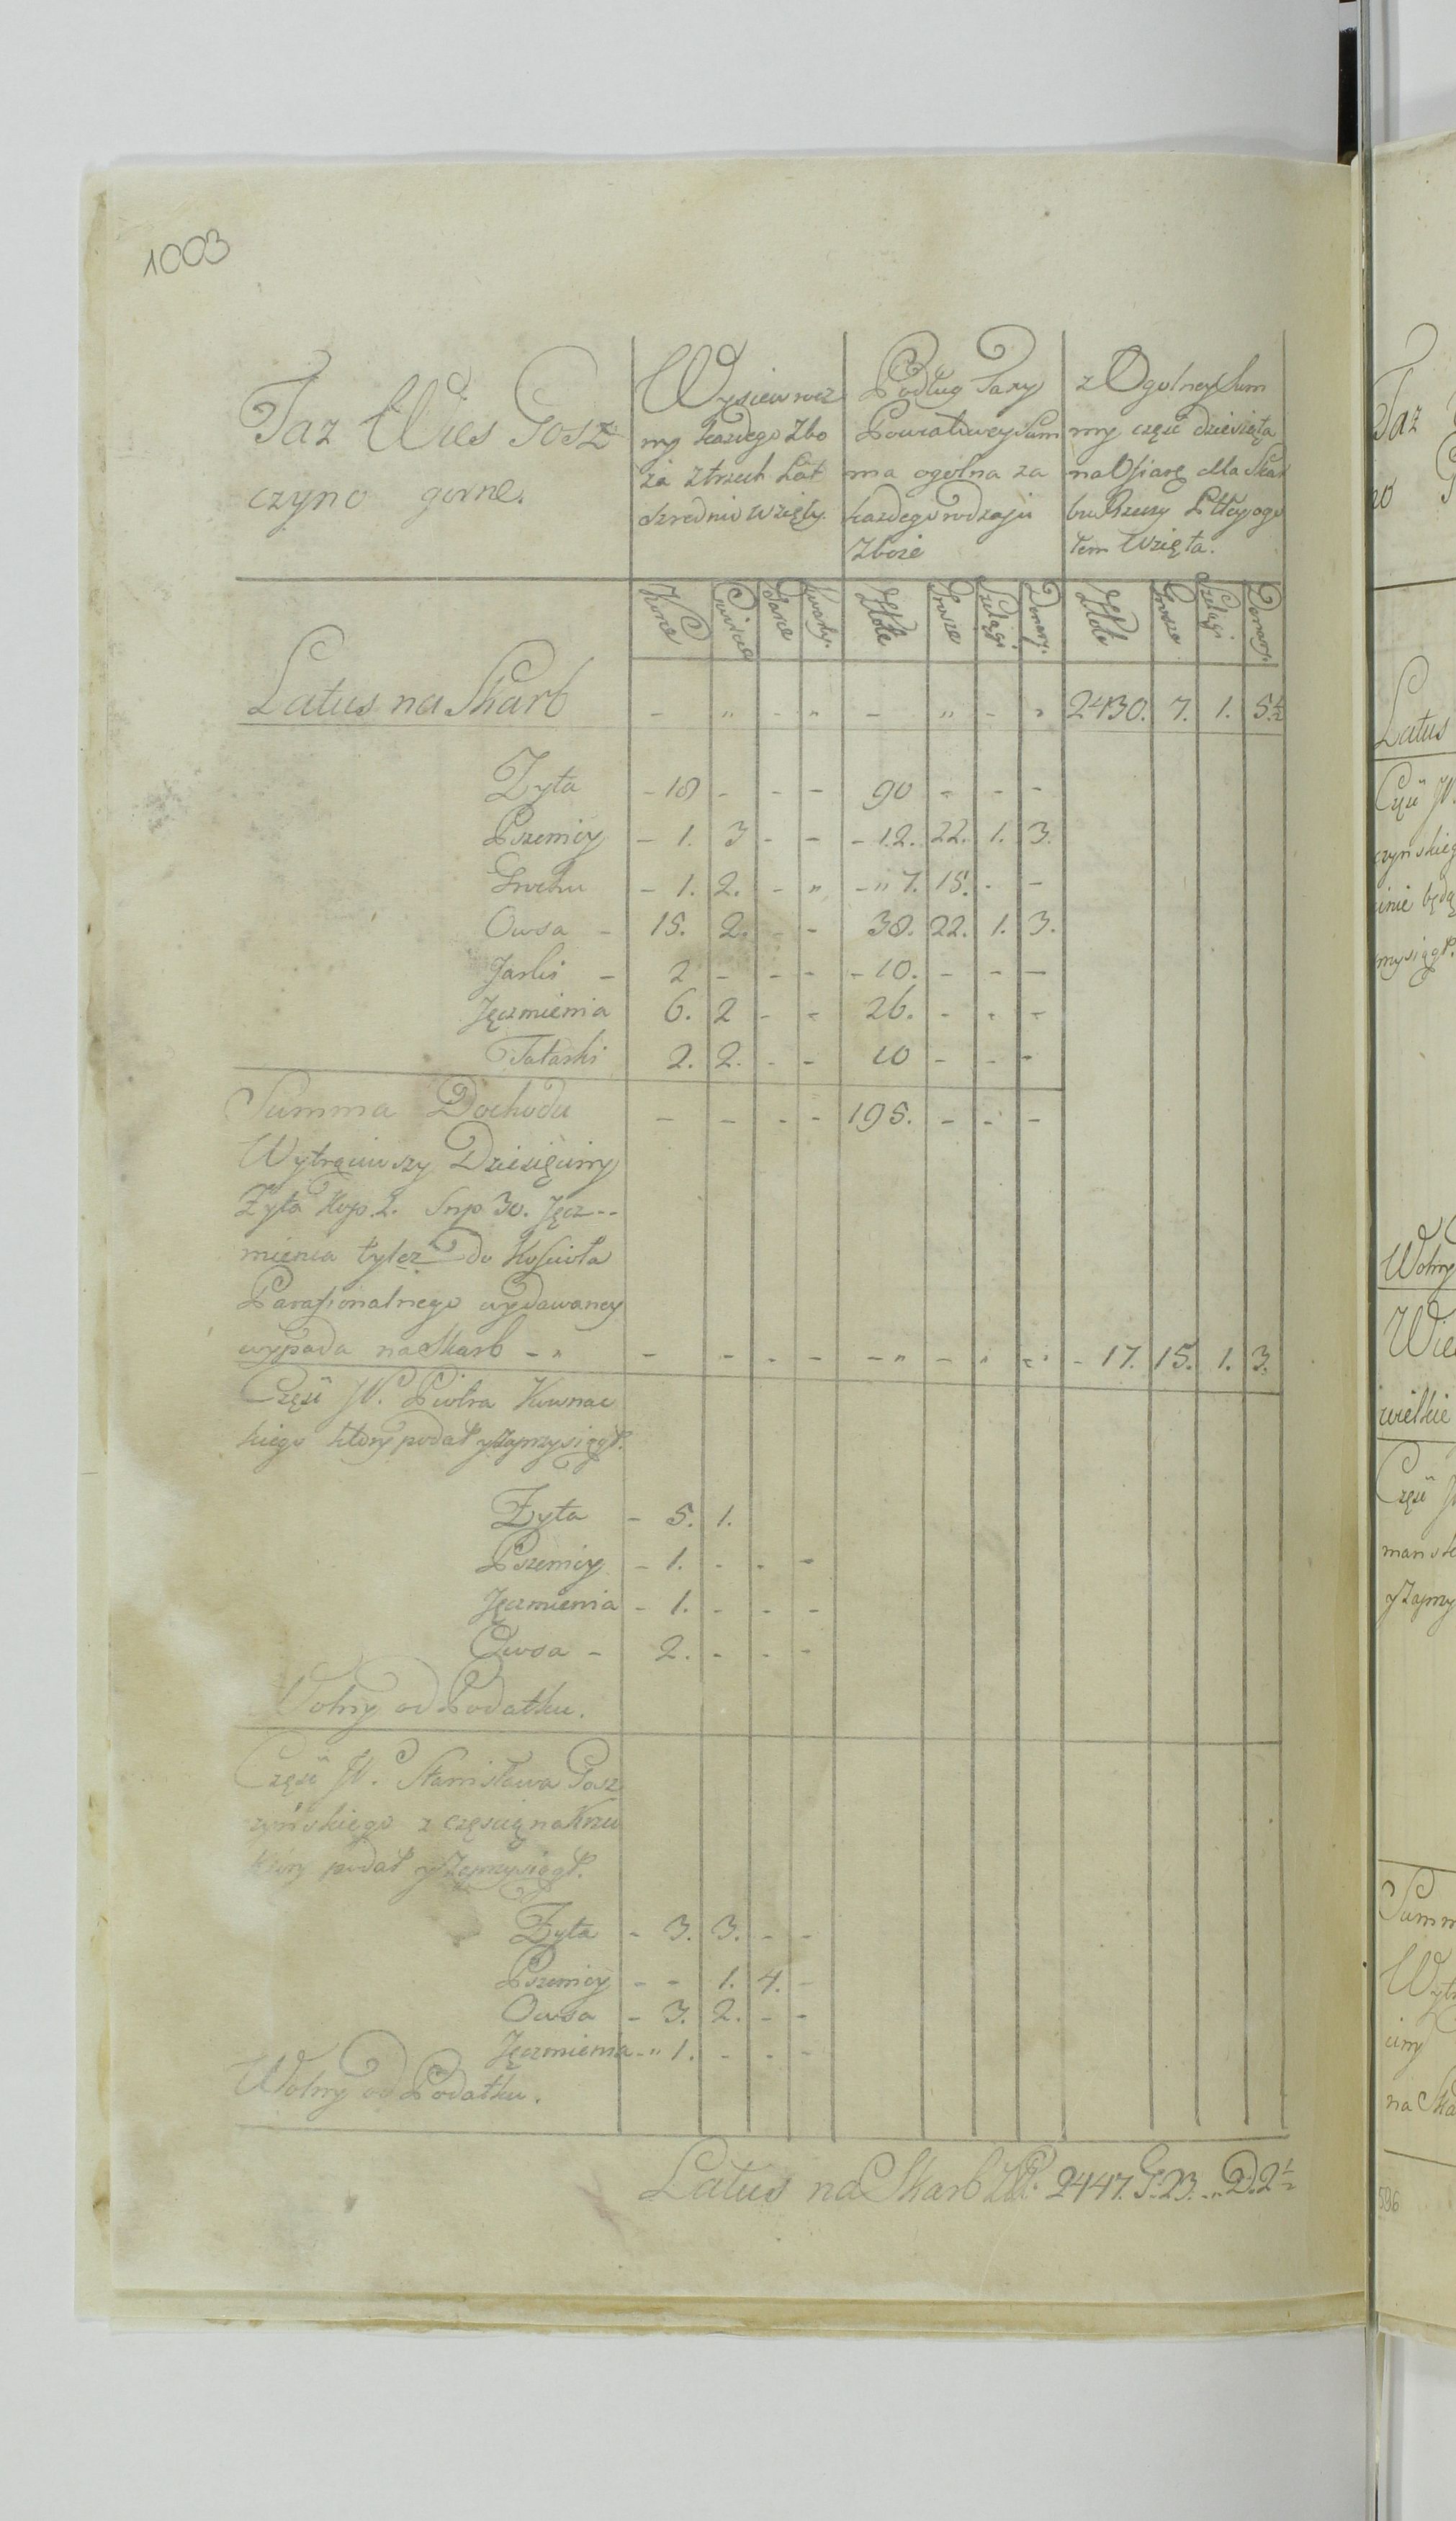 1003
Taz Wies Gosz
czyno gorne.
Wysiew rocz
ny każdego Zbo
ża z trzech Lat
szrednio wzięty.
Podług Taxy
Powiatowey Sum
ma ogolna za
każdego rodzaju
Zboże
z Ogolney Sum
my częsć dziesiąta
na Ofiarę dla Skar
bu Rzeczy Pltey ogo
łem Wzięta.
Korce Cwierci Garce Kwarty. Złote Grosze Szelągi Denary. Złote Grosze Szelągi. Denary.
Latus na Skarb - " - " - " - " 2430. 7. 1. 5½
Zyta - 18 - - - 90 - - -
Pszenicy - 1. 3 - - - 12. 22. 1. 3.
Grochu - 1. 2. - " - " 7. 15. - -
Owsa - 15. 2. - - 38. 22. 1. 3.
Jarki - 2 - - - - 10. - - -
Jęczmienia 6. 2 - - 26. - - -
Tatarki 2. 2. - - 10 - - -
Summa Dochodu - - - - 195. - - -
Wytrąciwszy Dziesięciny
Zyta Kop. 2. Snp. 30. Jęcz--
mienia tylez do Kościoła
Parafionalnego wydawaney
wypada na Skarb - " - - - - - " - " - " - 17. 15. 1. 3.
Częsć W. Piotra Kownac
kiego ktory podał y Zaprzysiągł.
Zyta - 5. 1.
Pszenicy - 1. - - -
Jęczmienia - 1. - - -
Owsa - 2. - - -
Wolny od Podatku.
Częsć W. Stanisława Gosz
czyńskiego z częscią na
ktory podał y Zaprzysiągł.
Zyta - 3. 3. - -
Pszenicy - - 1. 4. -
Owsa - 3. 2. - -
Jęczmienia - " 1. - - -
Wolny od Podatku.
Latus na Skarb Zł. 2447. G. 23. - " D. 2½